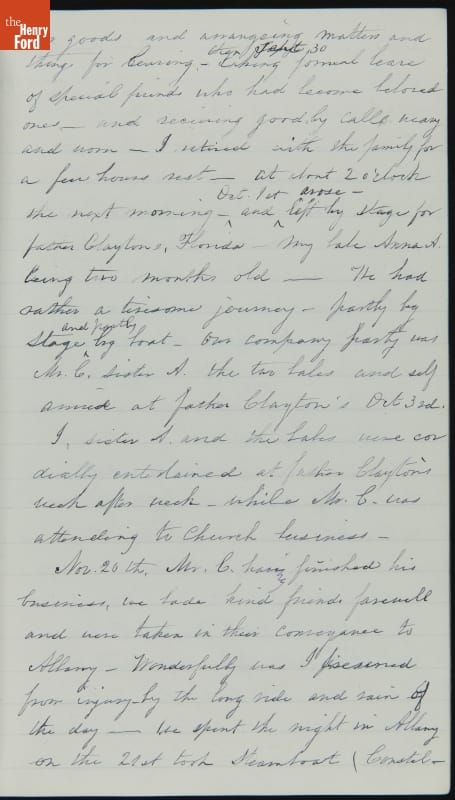 the
Henry
Ford
goods and arrangeing matters and
things for leaving, - then Sept, 30 taking formal leave
of special friends who had become beloved
ones - and recieving good,by calls weary
and worn - I retired with the family, for
a few hours rest - at bout 2 o'clock
the next morning - Oct. 1st arose - and left by stage for
father Clayton's, Florida - My babe Anna A.
being two months old — We had
rather a tiresome journey - partly by
stage and partly by boat - Our company party was
Mr. C. sister A. the two babes and self
arrived at father Clayton's Oct 3rd.
I, sister A. and the babes were cor
dially entertained at father Clayton's
week after week - while Mr. C. was
attending to Church business -
Nov. 20th, Mr. C. having finished his
business, we bade kind friends farewell
and were taken in their conveyance to
Albany - Wonderfully was I preserved
from injury by the long ride and rain of
the day — we spent the night in Albany
on the 21st took Steamboat (Constel-